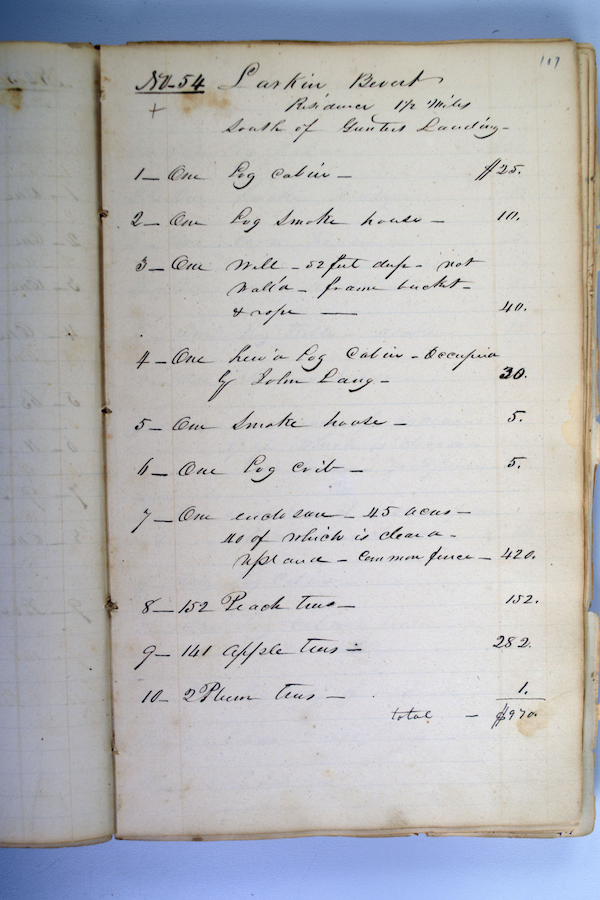 117
No-54 Larkin Bevert
+
Residence 1 1/2 Miles
South of Gunters Landing-
1- One Log cabin - $25.
2- One Log Smoke house - 10.
3- One Well - 52 feet deep - not
Wall'd - frame bucket-
& rope - 40.
4- One hew'd Log Cabin - Occupied
by John Lang - 30.
5- One Smoke house - 5.
6- One Log crib - 5.
7- One enclosure - 45 acres -
40 of which is cleard -
upland - Common fence - 420.
8- 152 Peach trees - 152.
9- 141 apple trees - 282.
10- 2 Plum trees - 1.
total - $970.